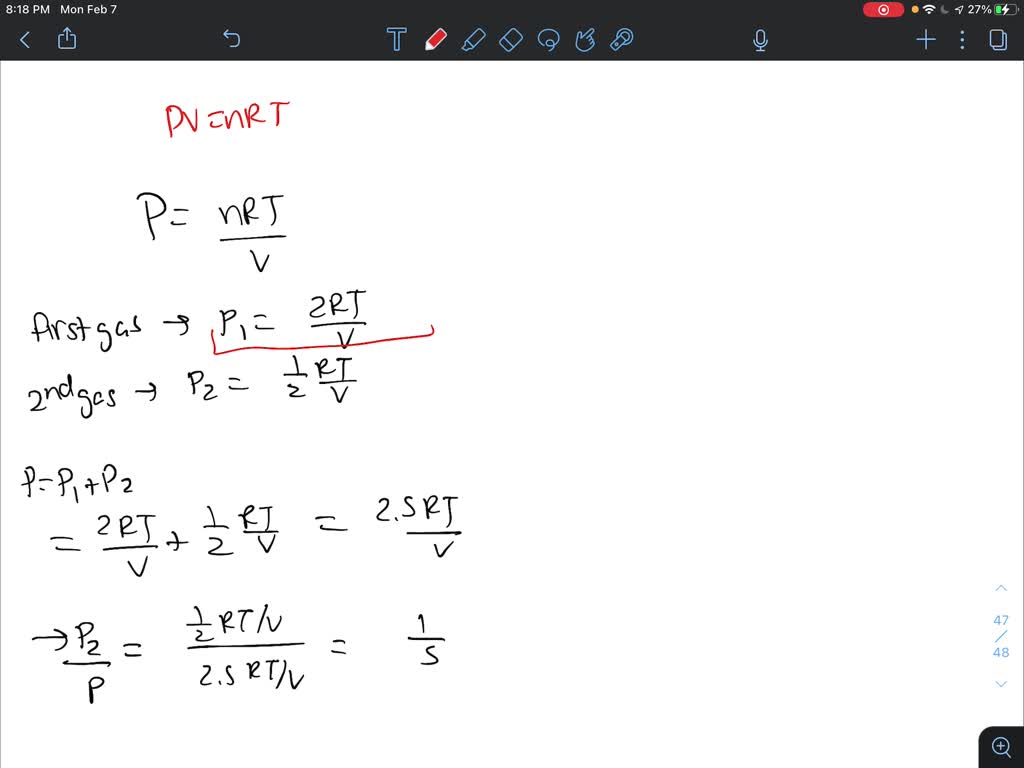 8:18 PM Mon Feb 7 27%
T
PV=nRT
P= nRT/V
first gas → P₁= 2RT/V
2nd gas → P₂ = 1/2 RT/V
P=P₁+P₂
= 2RT/V + 1/2 RT/V = 2.5RT/V
→ P₂/P = 1/2 RT/V / 2.5 RT/V = 1/5
47
/
48